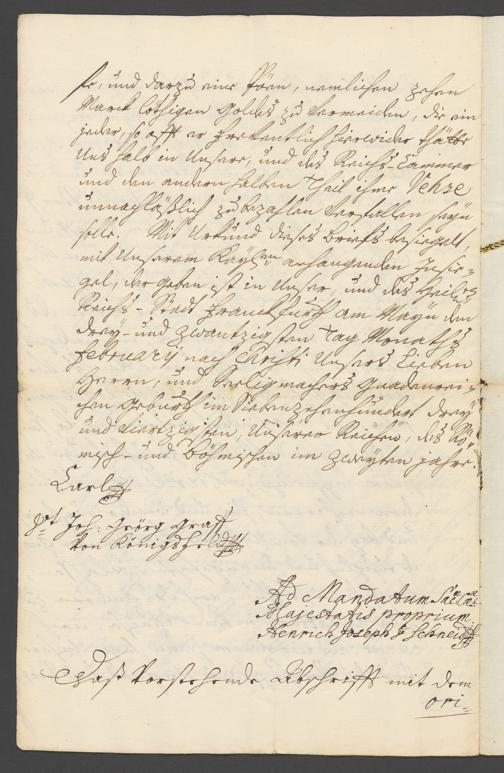 ste, und darzu eine Pöen, nemlichen zehen
Marck löthigen Goldes zu vermeiden, die ein
jeder, so offt er freventlich hierwider thätte
Uns halb in Unsere, und des Reichs-Cammer
und den andern halben Theil ihme Vehse
unnachläßlich zu bezahlen verfallen seyn
solle. Mit Urkund dieses Briefs besiegelt,
mit Unserem Kayßen anhangenden Insie-
gel, der geben ist in Unser, und des Heiligen
Reichs-Stadt Franckfurth am Mayn den
drey- und zwantzigsten Tag Monaths
February nach Christi Unsers Lieben
Herrn, und Seeligmachers Gnadenrei-
chen Geburth im Siebenzehenhundert drey
und Viertzigisten, Unserer Reichen, des Rö-
misch- und Böhmischen im zweyten Jahre.
Carl
Vt Joh: Geörg Graff
Von Königsfeld
Ad Mandatum Sac. Cæs.
Majestatis proprium
Henrich Joseph v Schneid
Daß Vorstehende Abschrifft mit dem
ori-